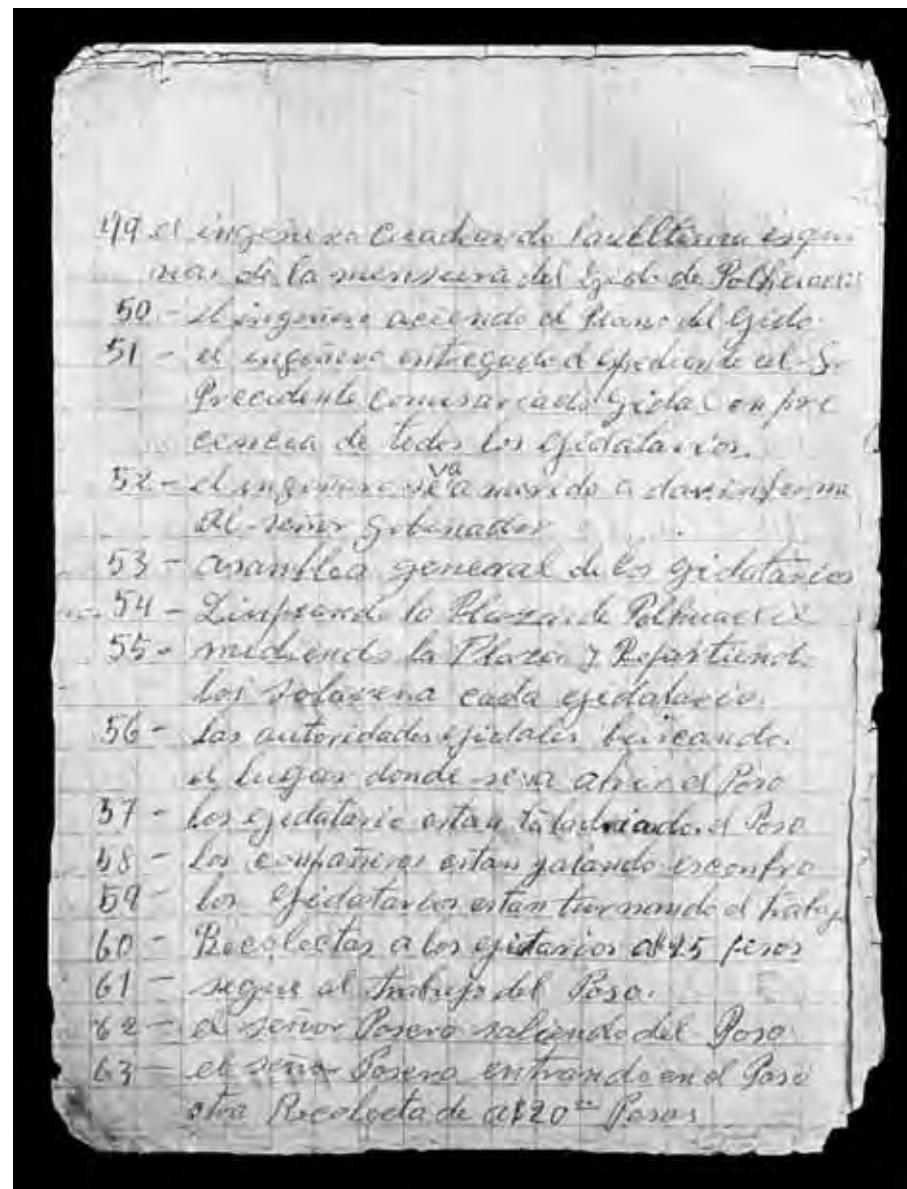 49 el ingeniero cuadrando la ultima esqui
nas de la mensura del Egido de Polhuacxil
50 - el ingeniero aciendo el Plano del Gido.
51 - el ingeñero entregado el espediente al Sr
Precidente comisariado Gidal en pre
cencia de todos los ejidatarios.
52 - el ingeniero va a merido a dar informe
al señor gobenador
53 - asamblea general de los gidatarios
54 - Limpiando la Plaza de Polhuacxil
55 - midiendo la Plaza y Repartiendo
los solares a cada ejidatario.
56 - las autoridades ejidales buscando
el lugar donde se va abrir el Poso
57 - los ejidatario estan taladriando el Poso
58 - los compañeros estan jalando escombro
59 - los Ejidatarios estan turnando el trabajo
60 - Recolectas a los ejitarios a $25 pesos
61 - segue al trabajo del Poso.
62 - el señor Posero saliendo del Poso
63 - el señor Posero entrando en el Poso
otra Recolecta de a $20.00 Pesos